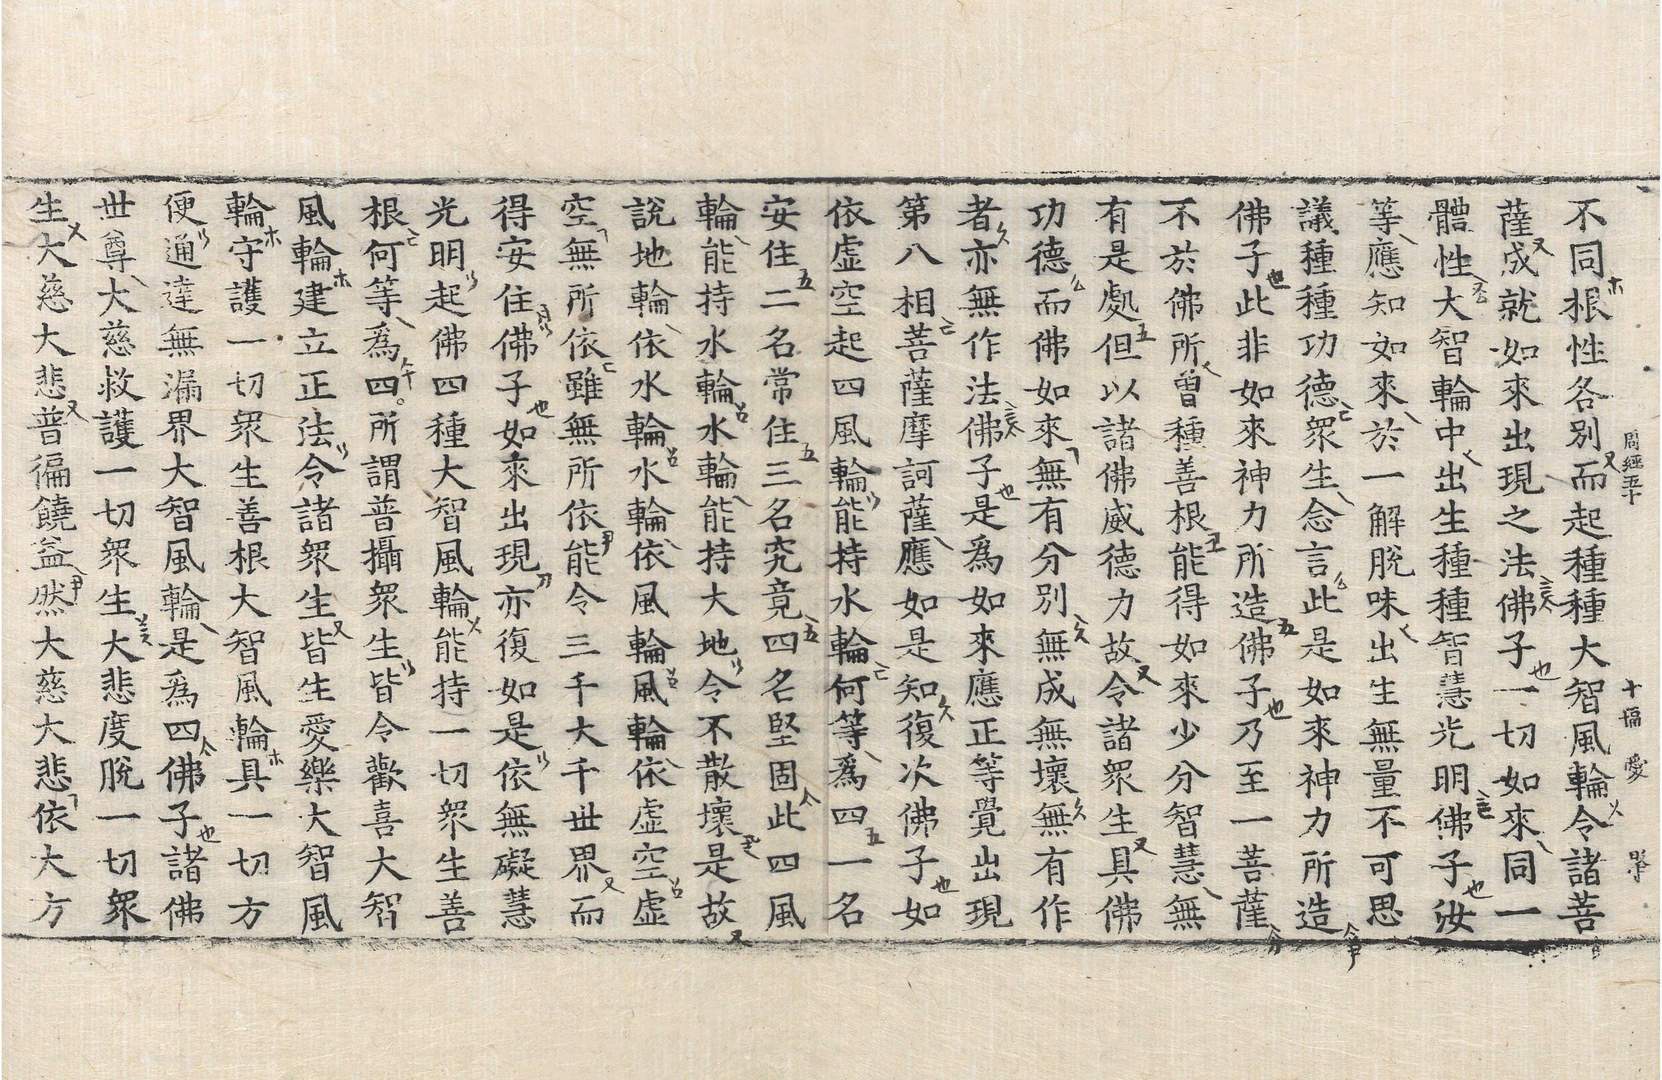 周經五十 十幅 愛
不同根性各別而起種種大智風輪令諸菩
薩成就如來出現之法佛子一切如來同一
體性大智輪中出生種種智慧光明佛子汝
等應知如來於一解脫味出生無量不可思
議種種功德眾生念言此是如來神力所造
佛子此非如來神力所造佛子乃至一菩薩
不於佛所曾種善根能得如來少分智慧無
有是處但以諸佛威德力故令諸眾生具佛
功德而佛如來無有分別無成無壞無有作
者亦無作法佛子是為如來應正等覺出現
第八相菩薩摩訶薩應如是知復次佛子如
依虛空起四風輪能持水輪何等為四一名
安住二名常住三名究竟四名堅固此四風
輪能持水輪水輪能持大地令不散壞是故
說地輪依水輪水輪依風輪風輪依虛空虛
空無所依雖無所依能令三千大千世界而
得安住佛子如來出現亦復如是依無礙慧
光明起佛四種大智風輪能持一切眾生善
根何等為四所謂普攝眾生皆令歡喜大智
風輪建立正法令諸眾生皆生愛樂大智風
輪守護一切眾生善根大智風輪具一切方
便通達無漏界大智風輪是為四佛子諸佛
世尊大慈救護一切眾生大悲度脫一切眾
生大慈大悲普徧饒益然大慈大悲依大方